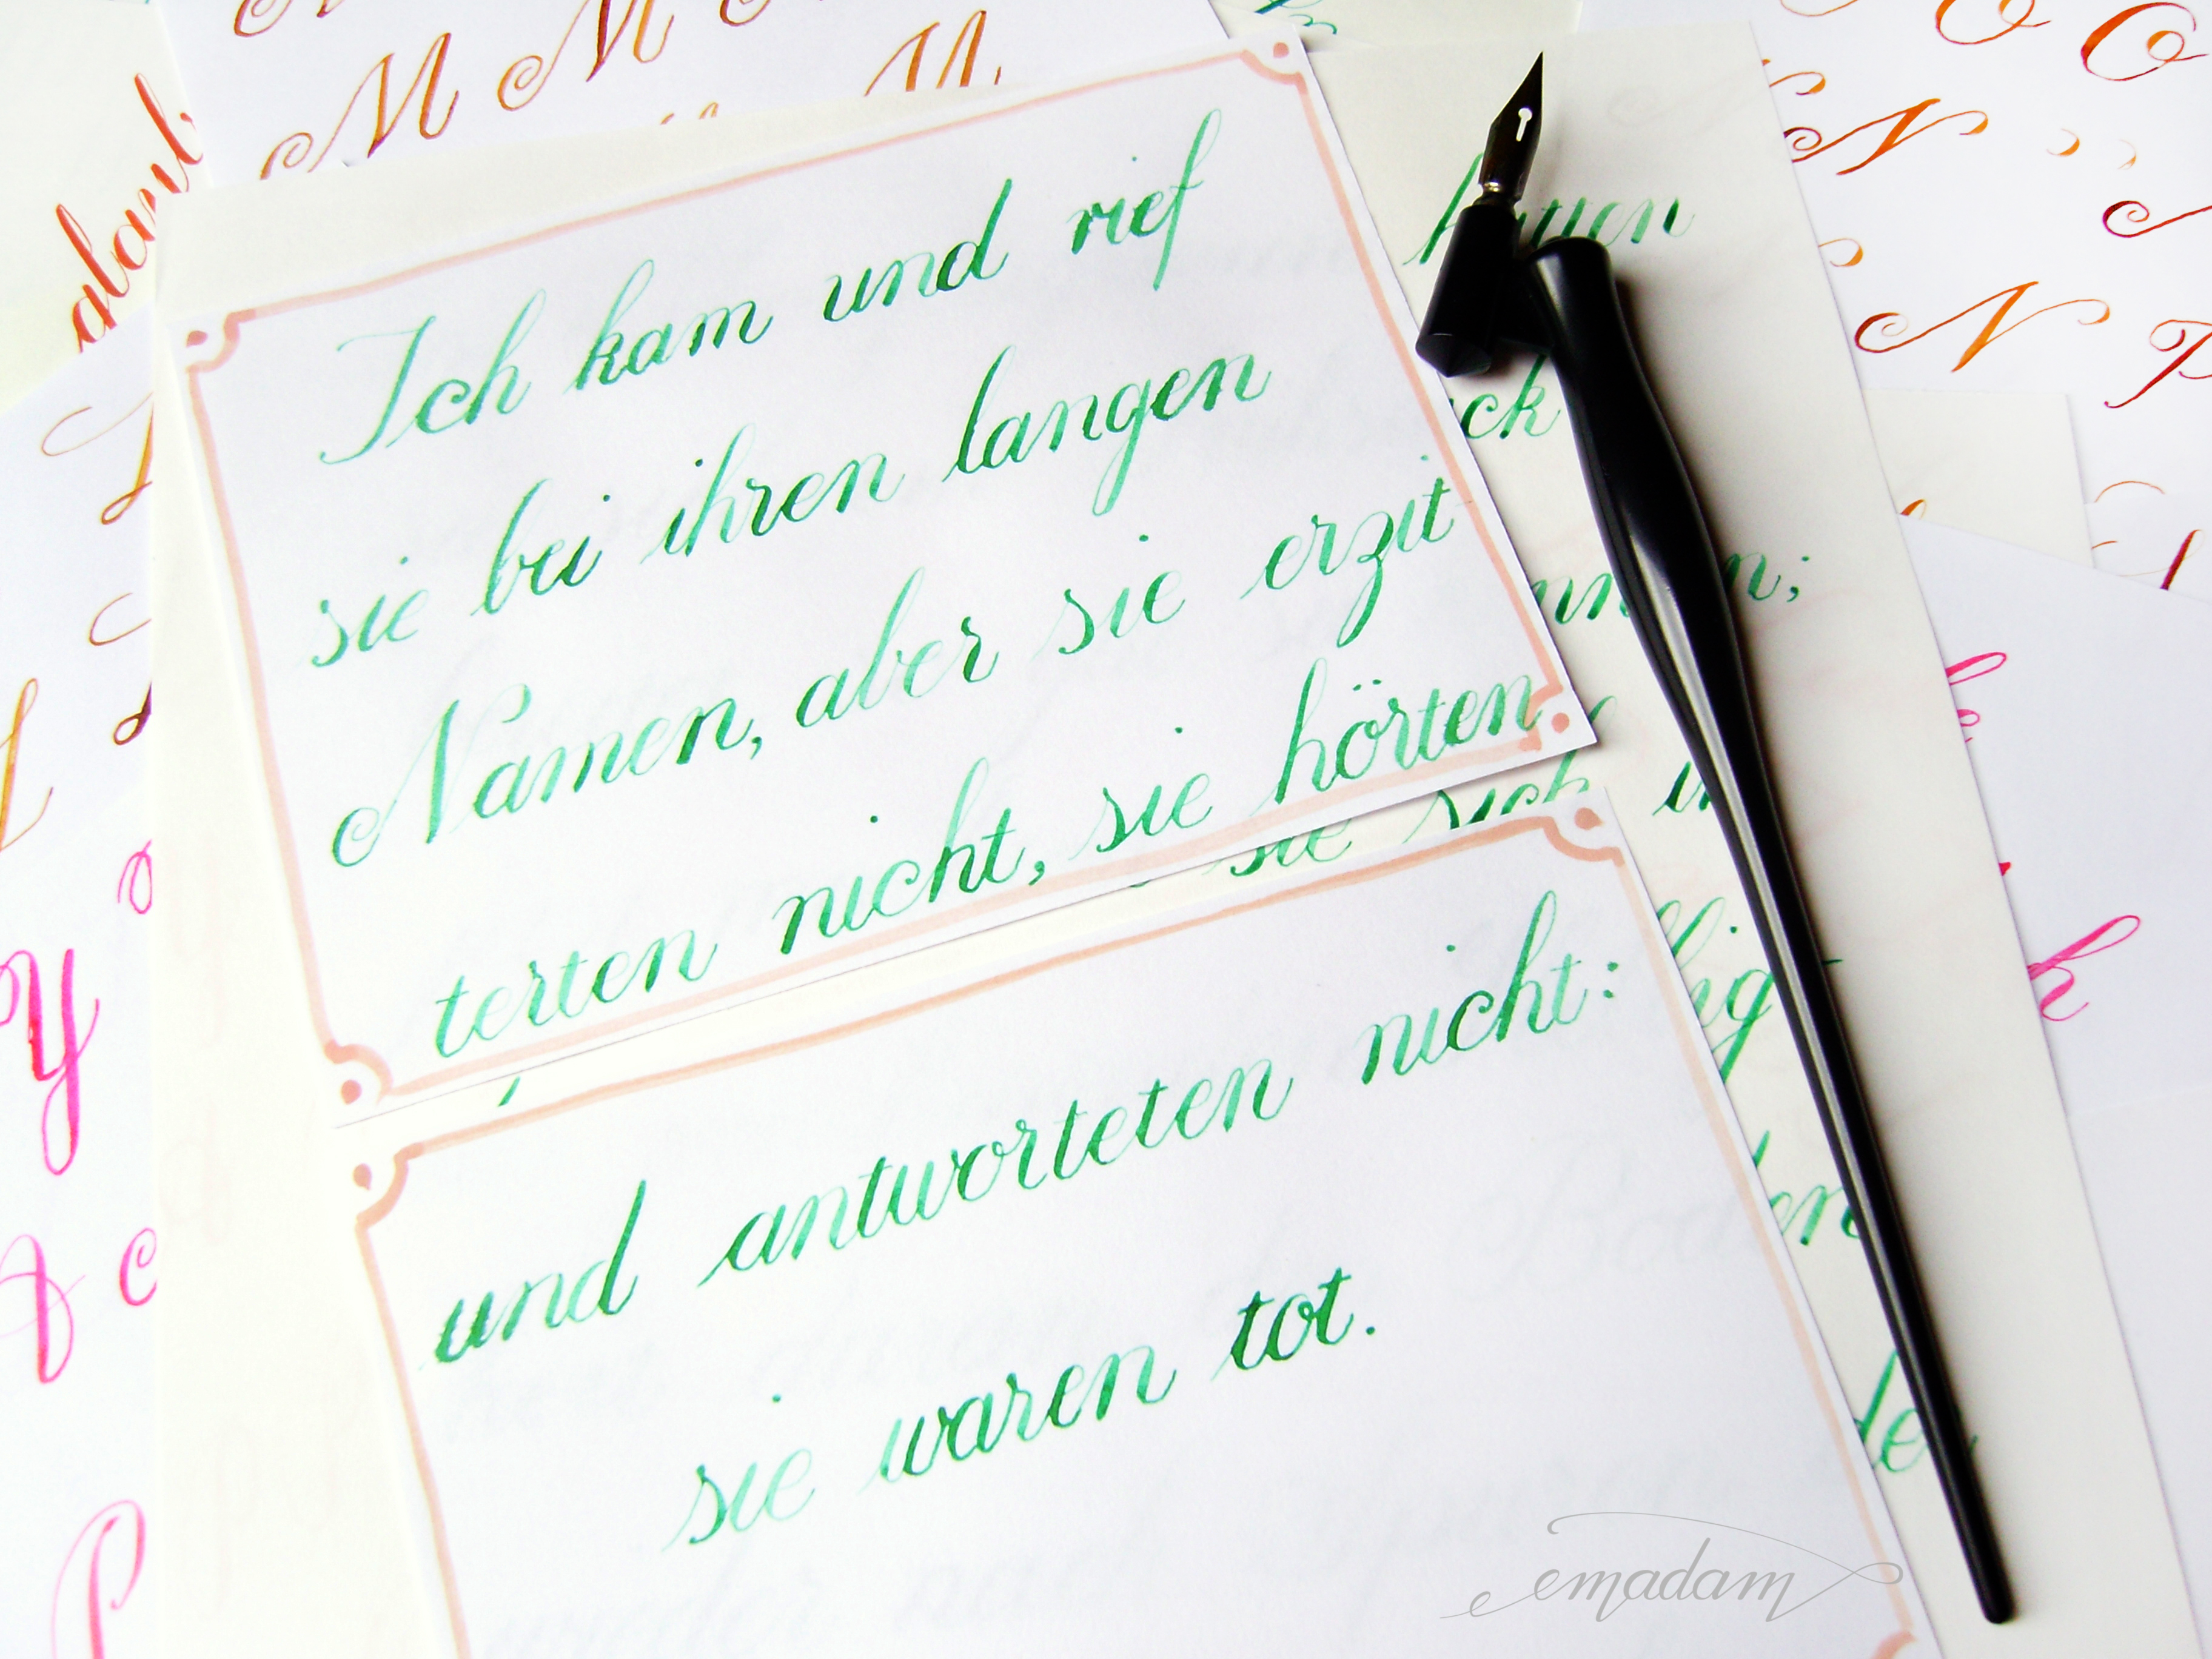 Ich kam und rief
sie bei ihren langen
Namen, aber sie erzit
terten nicht, sie hörten
und antworteten nicht:
sie waren tot.
sie sich
M M
M
N
N
emadam